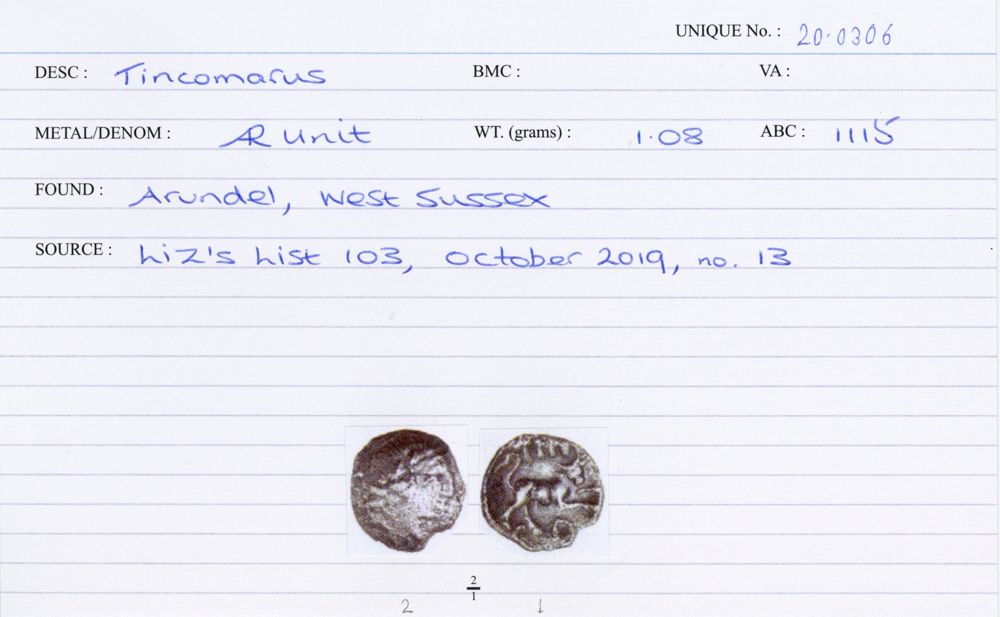 UNIQUE No. : 20.0306
DESC : Tincomarus BMC : VA :
METAL/DENOM : AR Unit WT. (grams) : 1.08 ABC : 1115
FOUND : Arundel, West Sussex
SOURCE : Liz's List 103, October 2019, no. 13
2
1
2 1